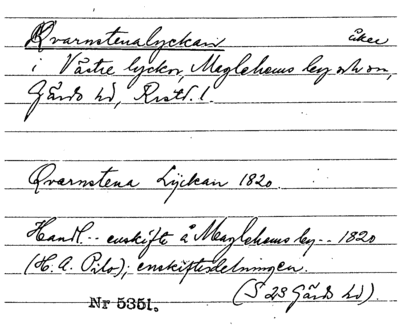 Qvarnstenalyckan åker
i Västre lyckor, Maglehems by och sn,
Gärds hd, Krstd. l.
Qvarnstena Lyckan 1820.
Handl. -- enskifte å Maglehems by -- 1820
(H. A. Pilo); enskiftesdelningen.
(S 28 Gärds hd).
Nr 5351.